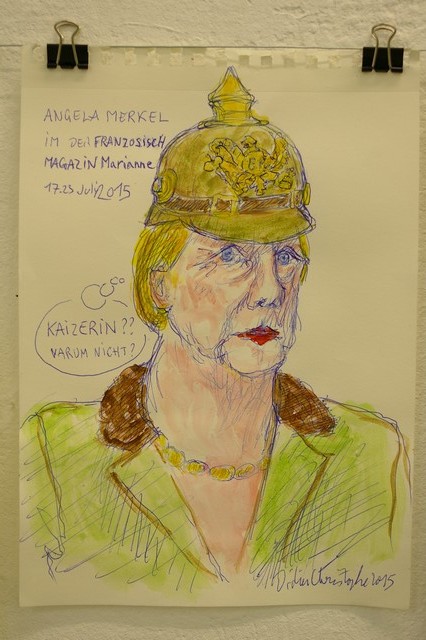 ANGELA MERKEL
IM DER FRANZOSISCH
MAGAZIN Marianne
17.23 July 2015
KAIZERIN??
VARUM NICHT?
Didier Christophe 2015